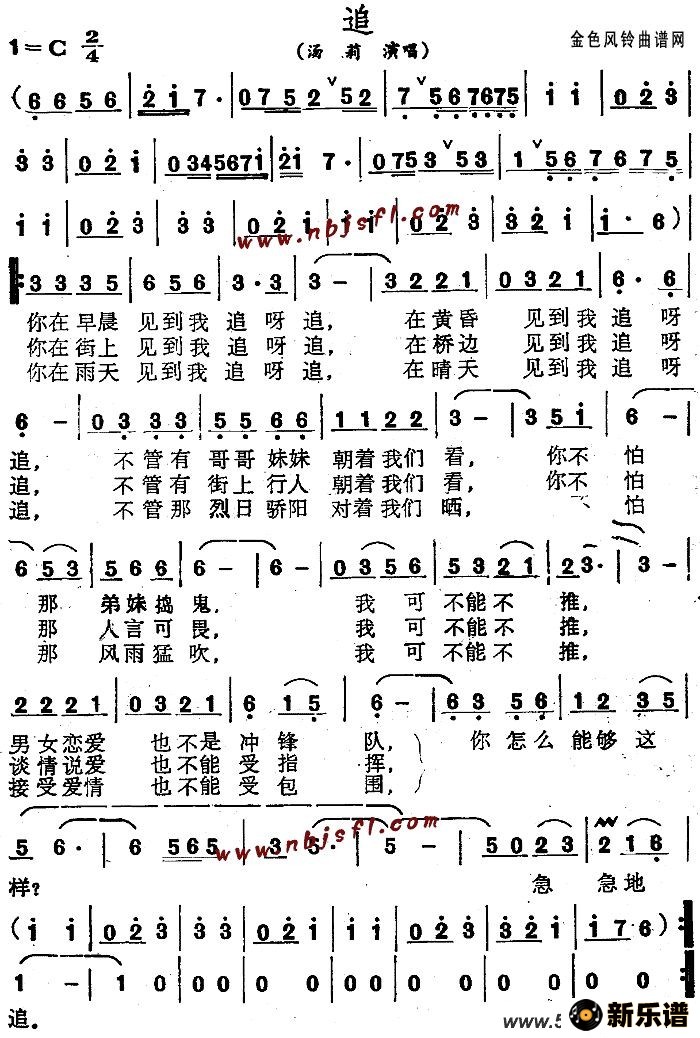 追
1=C 2/4
(汤 莉 演唱)
金色风铃曲谱网
(6 6 5 6 | 2 1 7· | 0 7 5 2 ∨ 5 2 | 7 ∨ 5 6 7 6 7 5 | i i | 0 2 3 |
3 3 | 0 2 i | 0 3 4 5 6 7 i | 2 i 7· | 0 7 5 3 ∨ 5 3 | 1 ∨ 5 6 7 6 7 5 |
i i | 0 2 3 | 3 3 | 0 2 i | i i | 0 2 3 | 3 2 i | i· 6) |
www.nbjsfl.com
3 3 3 5 | 6 5 6 | 3· 3 | 3 - | 3 2 2 1 | 0 3 2 1 | 6· 6 |
你在早晨 见到我 追 呀 追, 在黄昏 见到我 追 呀
你在街上 见到我 追 呀 追, 在桥边 见到我 追 呀
你在雨天 见到我 追 呀 追, 在晴天 见到我 追 呀
6 - | 0 3 3 3 | 5 5 6 6 | 1 1 2 2 | 3 - | 3 5 i | 6 -
追, 不管有 哥哥 妹妹 朝着我们 看, 你不 怕
追, 不管有 街上 行人 朝着我们 看, 你不 怕
追, 不管那 烈日 骄阳 对着我们 晒, 不 怕
6 5 3 | 5 6 6 | 6 - | 6 - | 0 3 5 6 | 5 3 2 1 | 2 3· | 3 - |
那 弟妹捣 鬼, 我 可 不能不 推,
那 人言可 畏, 我 可 不能不 推,
那 风雨猛 吹, 我 可 不能不 推,
2 2 2 1 | 0 3 2 1 | 6 1 5 | 6 - | 6 3 5 6 | 1 2 3 5 |
男女恋爱 也不是 冲 锋 队, 你 怎么 能够 这
谈情说爱 也不能 受 指 挥,
接受爱情 也不能 受 包 围,
5 6· | 6 5 6 5 | 3 5· | 5 - | 5 0 2 3 | 2 1 6 |
www.nbjsfl.com
样? 急 急地
(i i | 0 2 3 | 3 3 | 0 2 i | i i | 0 2 3 | 3 2 i | i 7 6) :||
1 - | 1 0 | 0 0 | 0 0 | 0 0 | 0 0 | 0 0 | 0 0 :||
追。
www.5
新乐谱